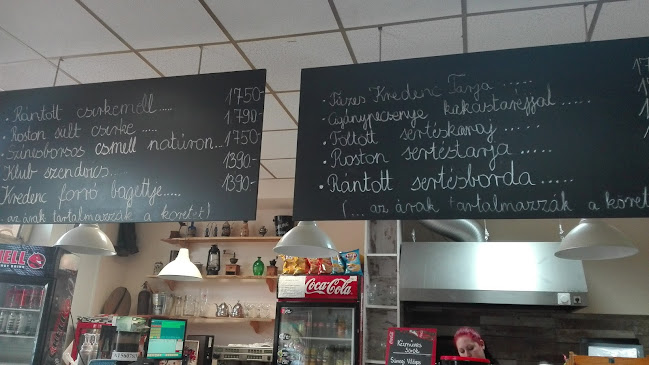 • Rántott csirkemell..... 1750-
• Roston sült csirke..... 1790-
Színesborsos csmell natúron... 1750
Klub szendvics... 1390-
Kredenc forró bagettje..... 1390-
...az árak tartalmazzák a köretet)
• Füzes Kredenc Tarja .....
• Cigánypecsenye kakastaréjjal.....
• Töltött sertéskaraj .....
• Roston sertéstarja .....
• Rántott sertésborda .....
(... az árak tartalmazzák a köret
HELL
Coca-Cola
Kézműves